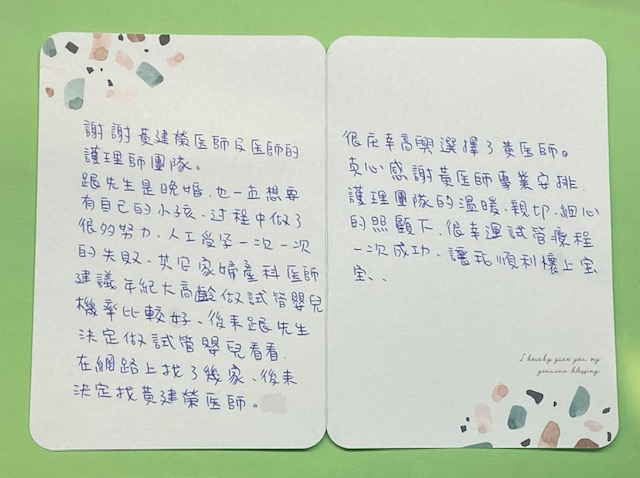 謝謝黃建榮医師及医師的
護理師團隊。
跟先生是晚婚、也一直想要
有自己的小孩、过程中做了
很多努力、人工受孕一次一次
的失敗、其它家婦產科医師
建議年紀大高齡做試管嬰兒
機率比較好、後來跟先生
決定做試管嬰兒看看.
在網路上找了幾家、後來
決定找黃建榮医師。
很庆幸高興選擇了黃医師。
真心感謝黃医師專業安排.
護理團隊的溫暖、親切、細心
的照顧下、很幸運試管療程
一次成功、讓我順利懷上宝
宝、、
I hereby give you my
genuine blessing